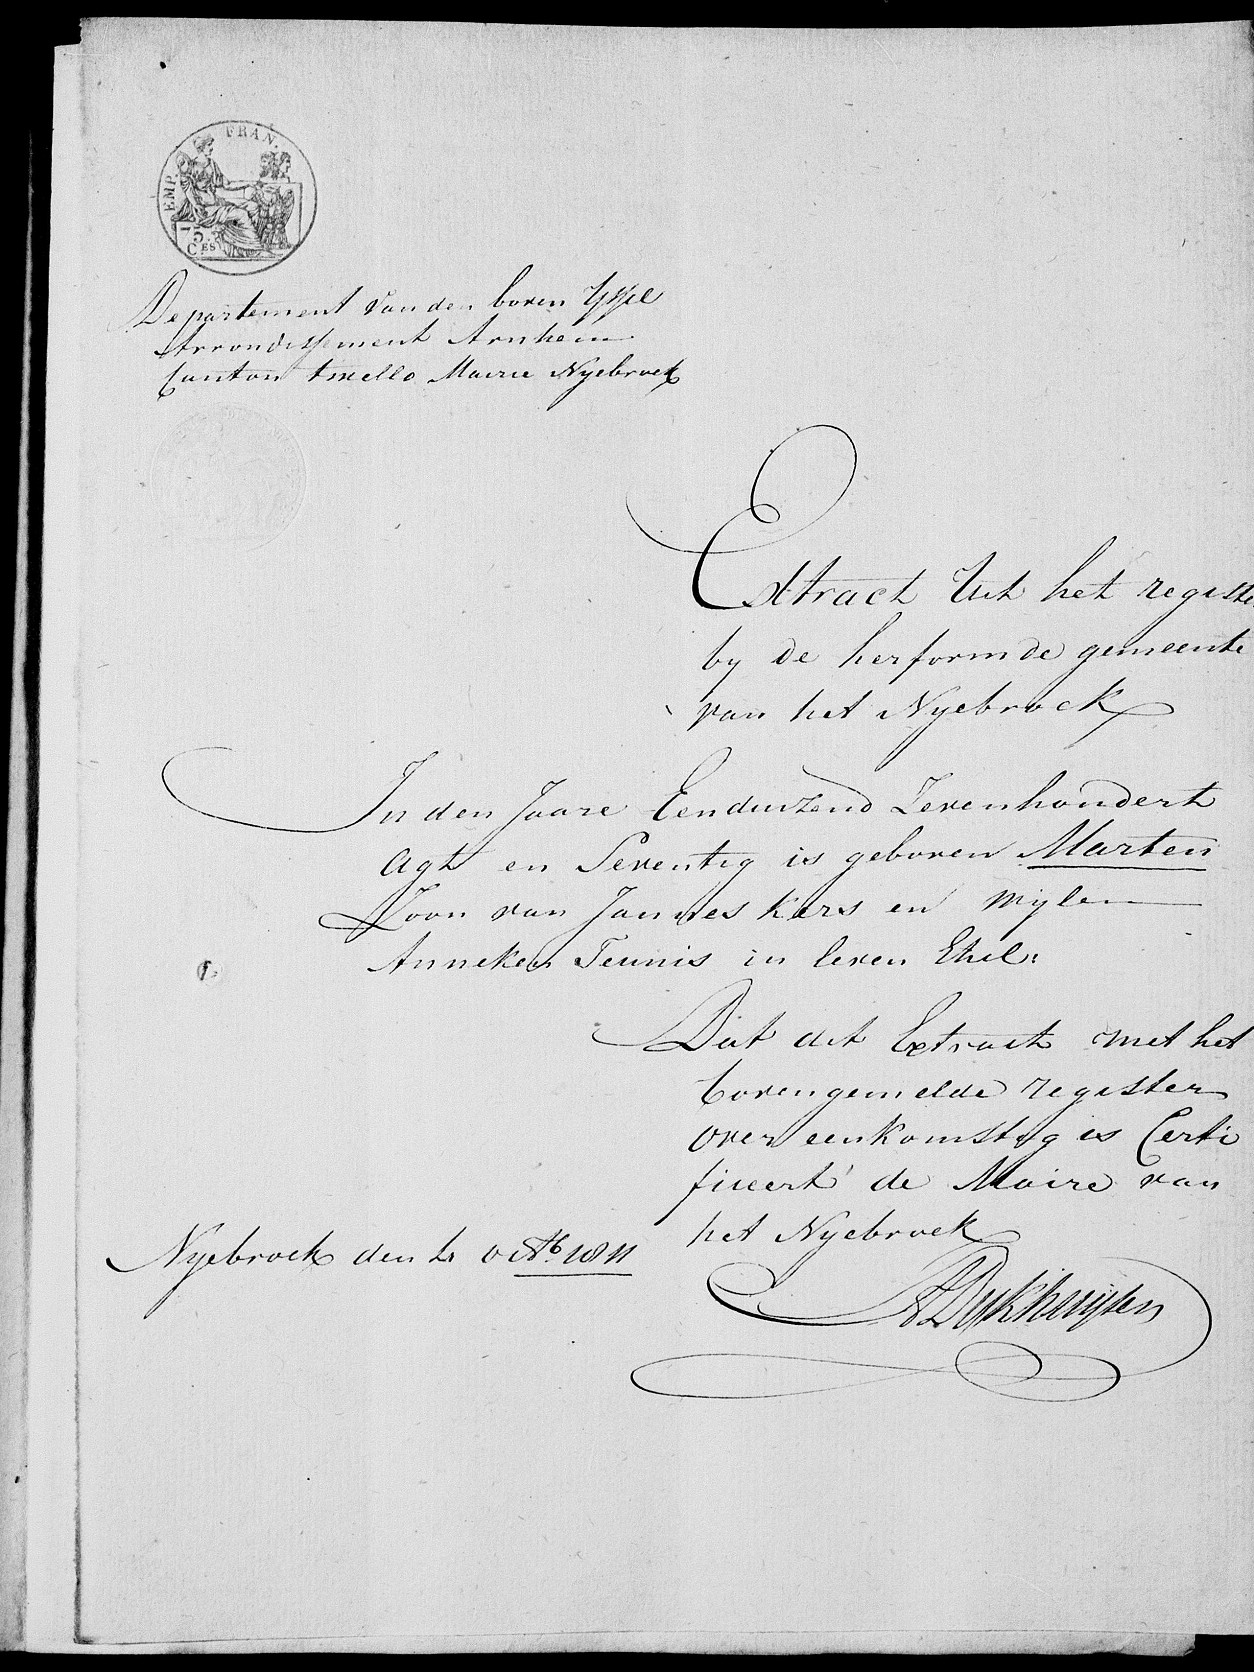 EMP. FRAN.
75
CES
Departement van den boven Yssel
Arrondissement Arnhem
Canton twello Mairie Nyebroek
Extract Uit het registe
by de herformde gemeente
van het Nyebroek
In den Jaare Eenduizend Zevenhondert
Agt en Seventig is geboren Marten
Zoon van Jannes Kers en Wylen
Anneken Teunis in leven Ehel:
Dat dit Extract met het
bovengemelde register
over eenkomstig is Certi
ficeert de Maire van
het Nyebroek
Nyebroek den 4 octb 1811
ADykhuijsen